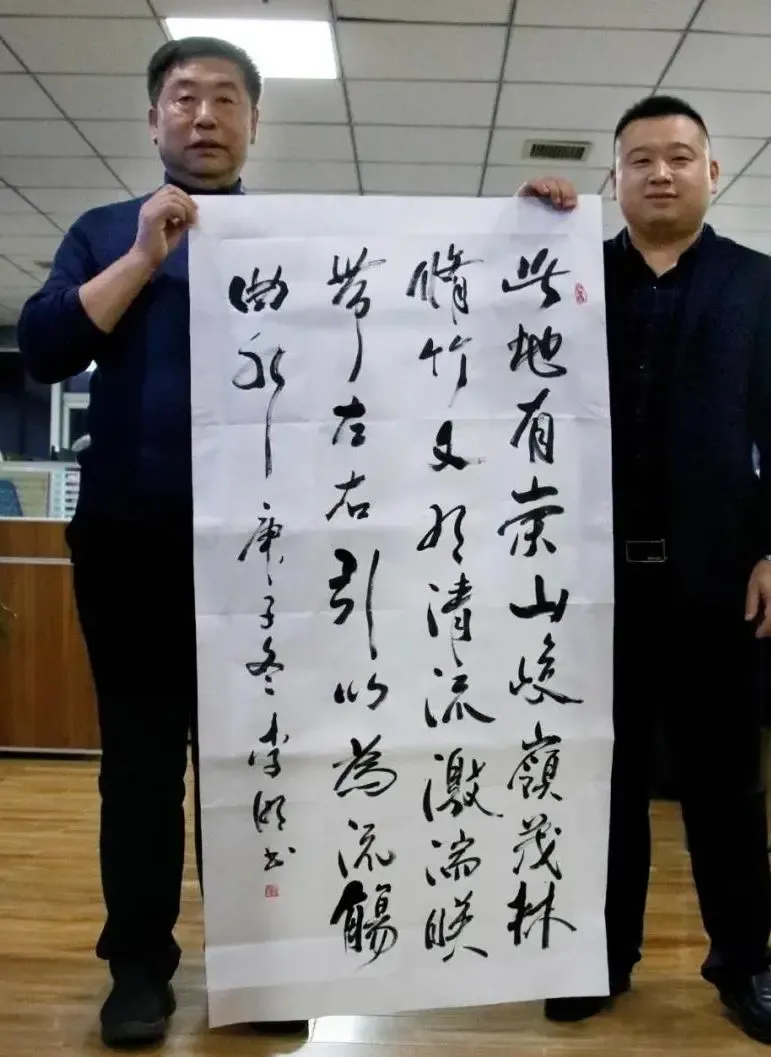 此地有崇山峻嶺茂林
脩竹又有清流激湍暎
帶左右引以為流觴
曲水 庚子冬 李书